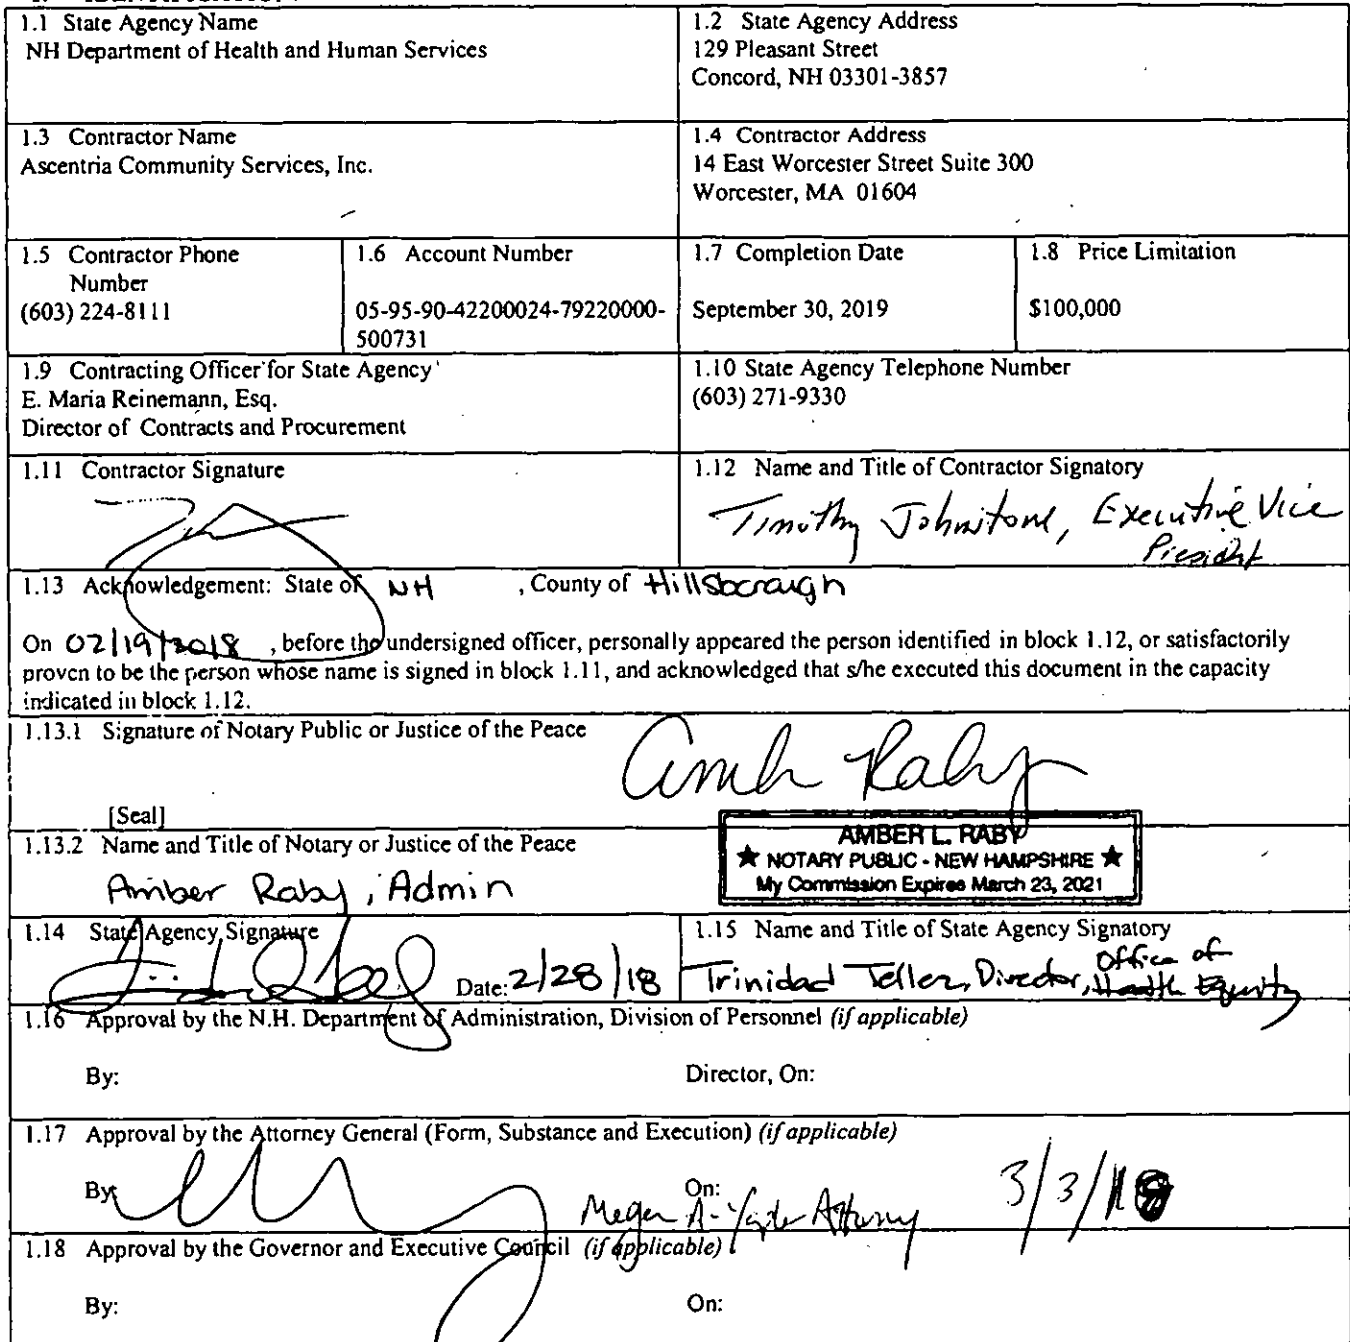 1.1 State Agency Name
NH Department of Health and Human Services
1.2 State Agency Address
129 Pleasant Street
Concord, NH 03301-3857
1.3 Contractor Name
Ascentria Community Services, Inc.
1.4 Contractor Address
14 East Worcester Street Suite 300
Worcester, MA 01604
1.5 Contractor Phone
Number
(603) 224-8111
1.6 Account Number
05-95-90-42200024-79220000-
500731
1.7 Completion Date
September 30, 2019
1.8 Price Limitation
$100,000
1.9 Contracting Officer for State Agency
E. Maria Reinemann, Esq.
Director of Contracts and Procurement
1.10 State Agency Telephone Number
(603) 271-9330
1.11 Contractor Signature
1.12 Name and Title of Contractor Signatory
Timothy Johnstone, Executive Vice
President
1.13 Acknowledgement: State of NH , County of Hillsboraugh
On 02/19/2018 , before the undersigned officer, personally appeared the person identified in block 1.12, or satisfactorily
proven to be the person whose name is signed in block 1.11, and acknowledged that s/he executed this document in the capacity
indicated in block 1.12.
1.13.1 Signature of Notary Public or Justice of the Peace
Amber Raby
[Seal]
AMBER L. RABY
★ NOTARY PUBLIC - NEW HAMPSHIRE ★
My Commission Expires March 23, 2021
1.13.2 Name and Title of Notary or Justice of the Peace
Amber Raby, Admin
1.14 State Agency Signature
Date: 2/28/18
1.15 Name and Title of State Agency Signatory
Trinidad Tellez, Director, Office of
Health Equity
1.16 Approval by the N.H. Department of Administration, Division of Personnel (if applicable)
By: Director, On:
1.17 Approval by the Attorney General (Form, Substance and Execution) (if applicable)
By: On: 3/3/18
Megan A. Attorney
1.18 Approval by the Governor and Executive Council (if applicable)
By: On: